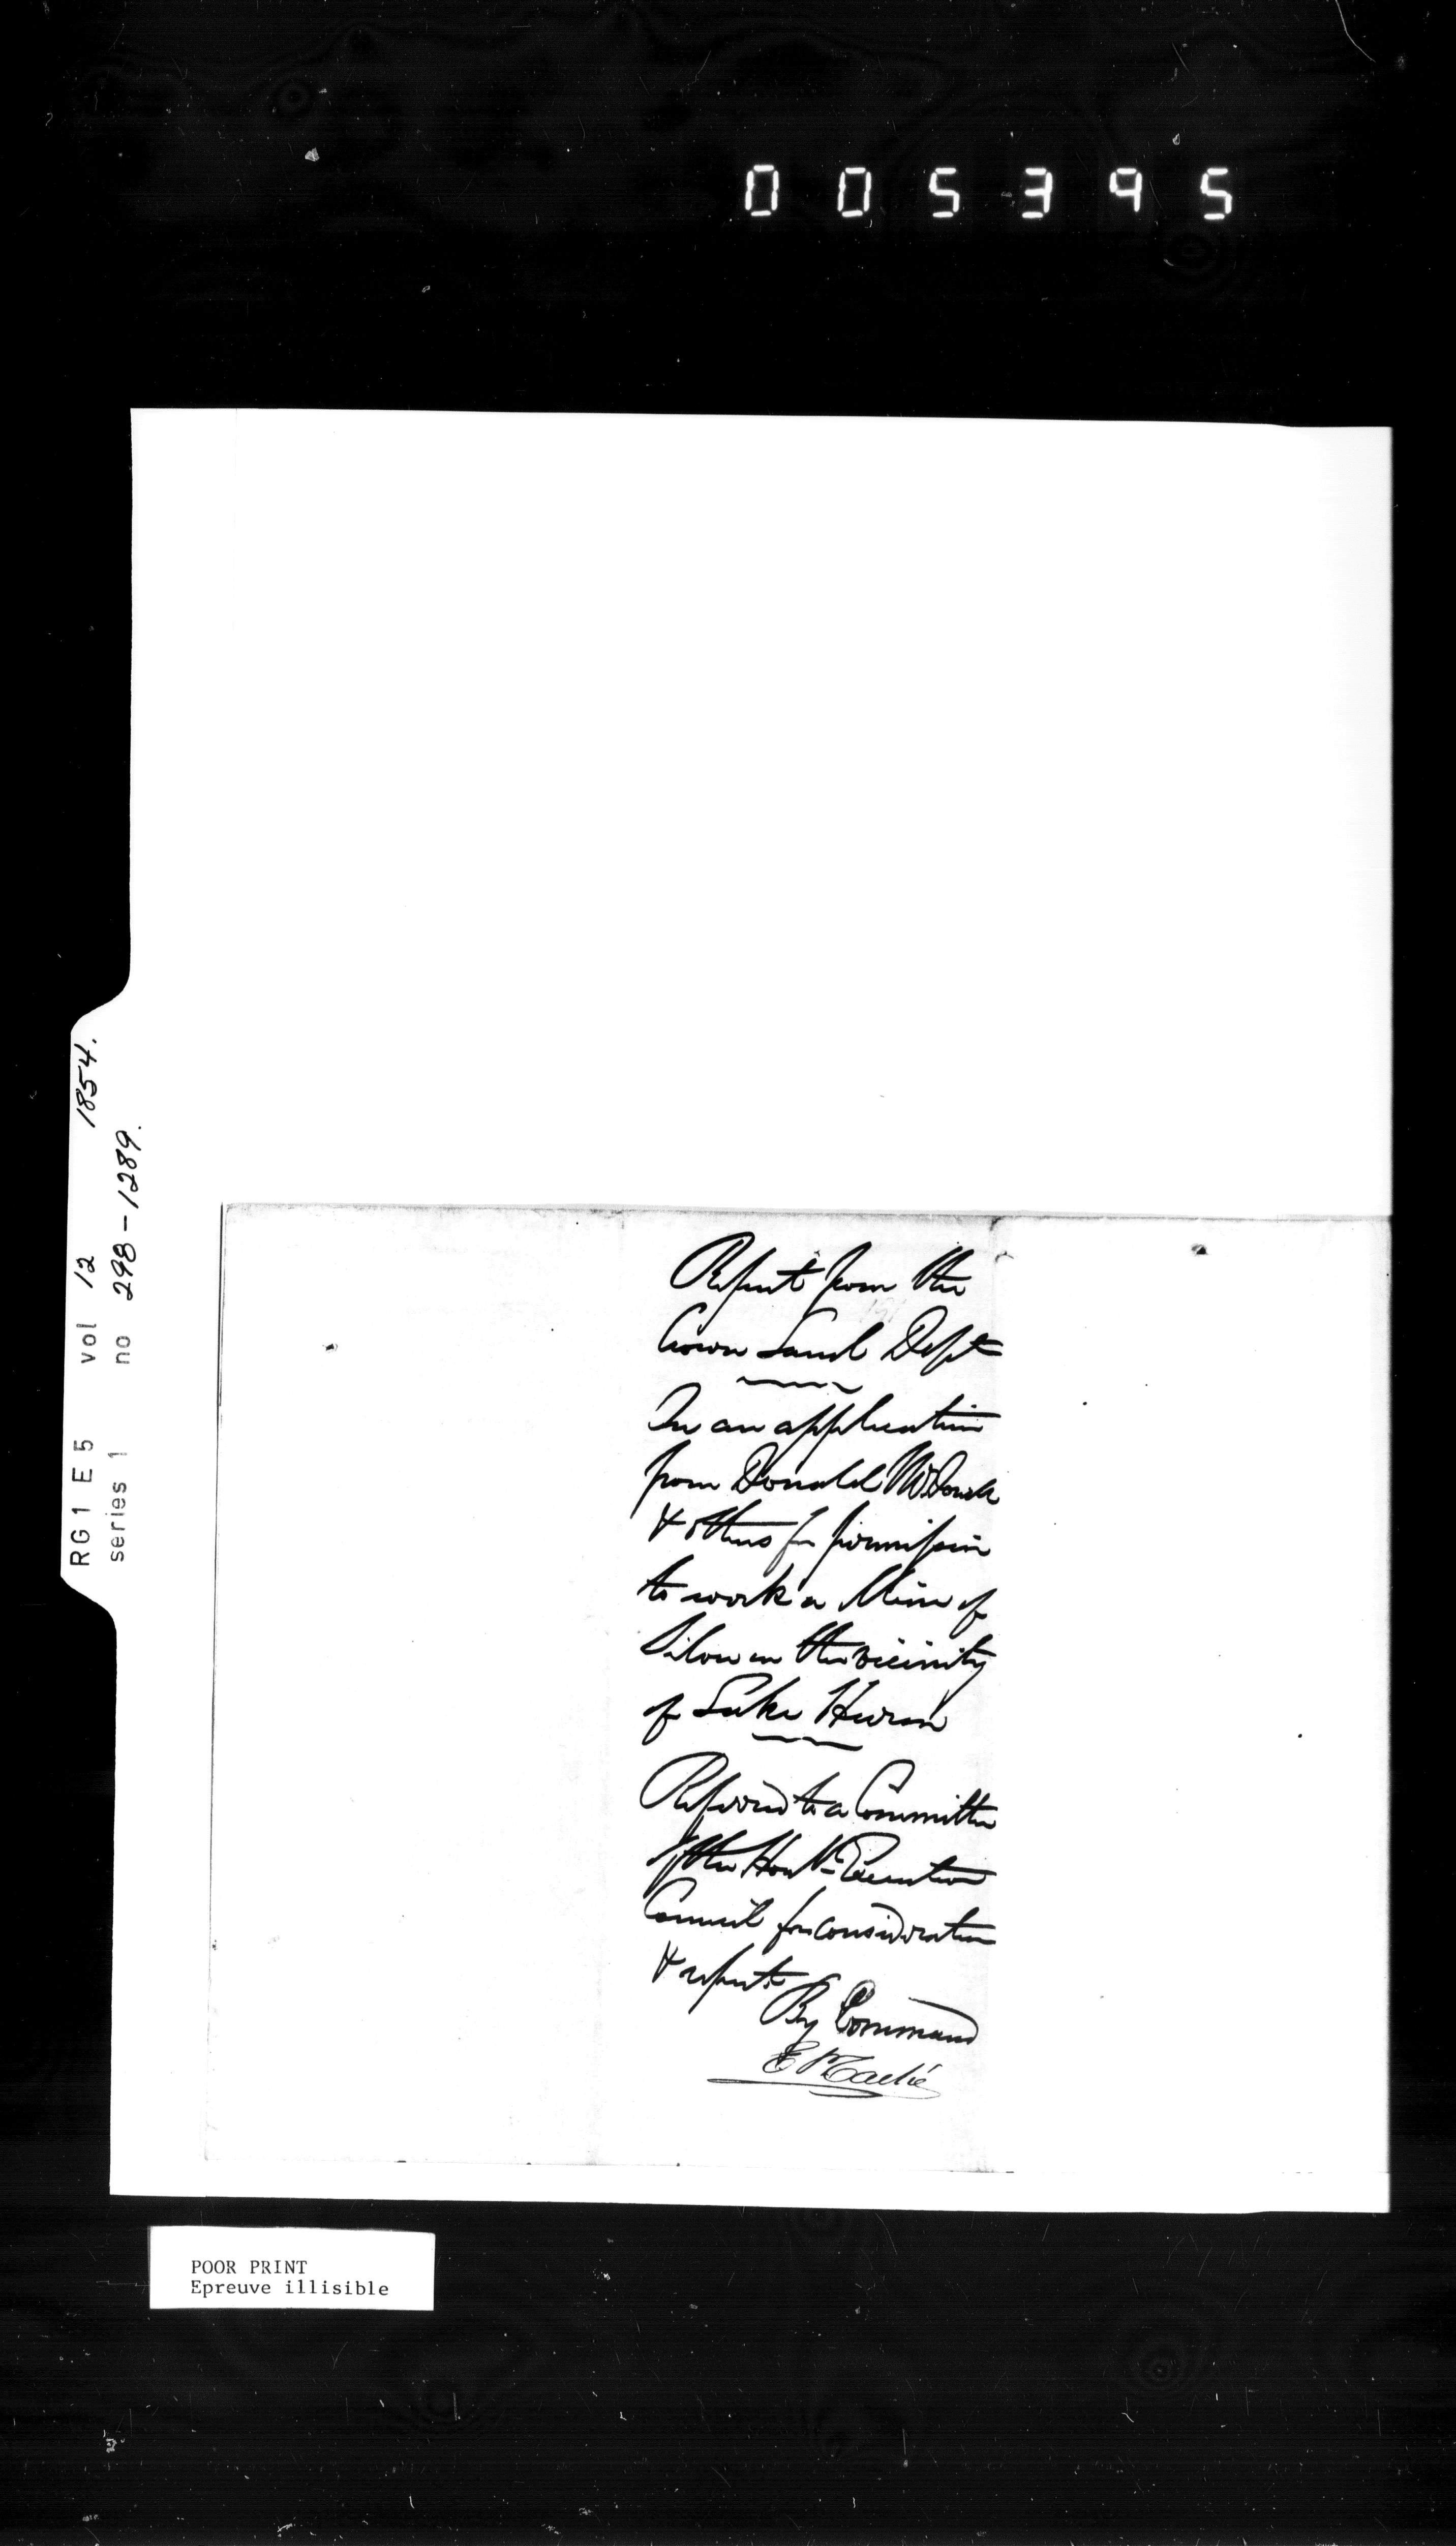 005395
RG1 E5 vol 12 1854.
series 1 no 298-1289.
Report from the
Crown Land Dept
On an application
from Donald
& others for permission
to work a Mine of
Silver in the vicinity
of Lake Huron
Referred to a Committee
of the Honble Executive
Council for consideration
& report.
By Command
E P Taché
POOR PRINT
Epreuve illisible